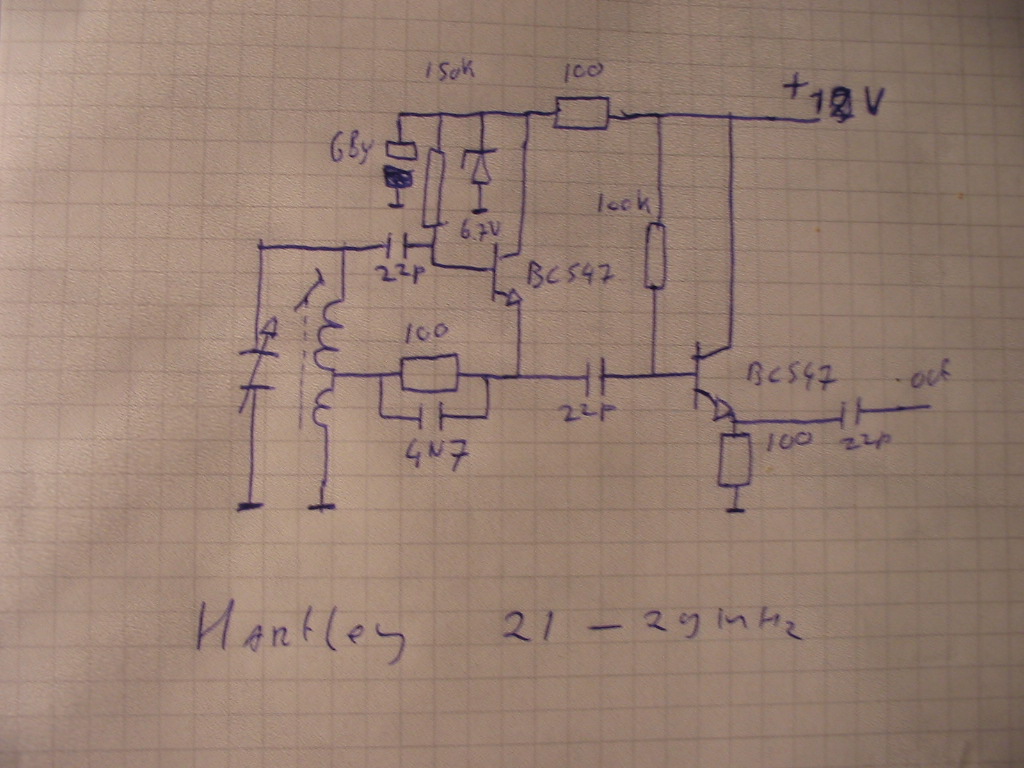 150k
100
+12V
68µ
100k
6.2V
22p
BC547
100
BC547
out
22p
4N7
100
22p
Hartley 21 - 29 mHz